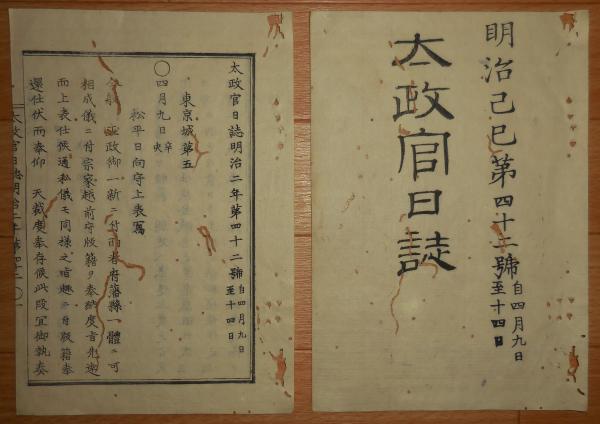 明治己巳第四十二號自四月九日至十四日
太政官日誌
太政官日誌明治二年第四十二號自四月九日至十四日
東京城第五
○四月九日辛夾
松平日向守上表寫
今般 政御一新ニ付而者府藩縣一體ニ可
相成儀ニ付宗家越前守版籍ヲ奉納度旨先達
而上表仕候通私儀モ同様之旨趣ニ付版籍奉
還仕伏而奉仰 天裁度奉存候此段宜御執奏
太政官日誌明治二年第四十二